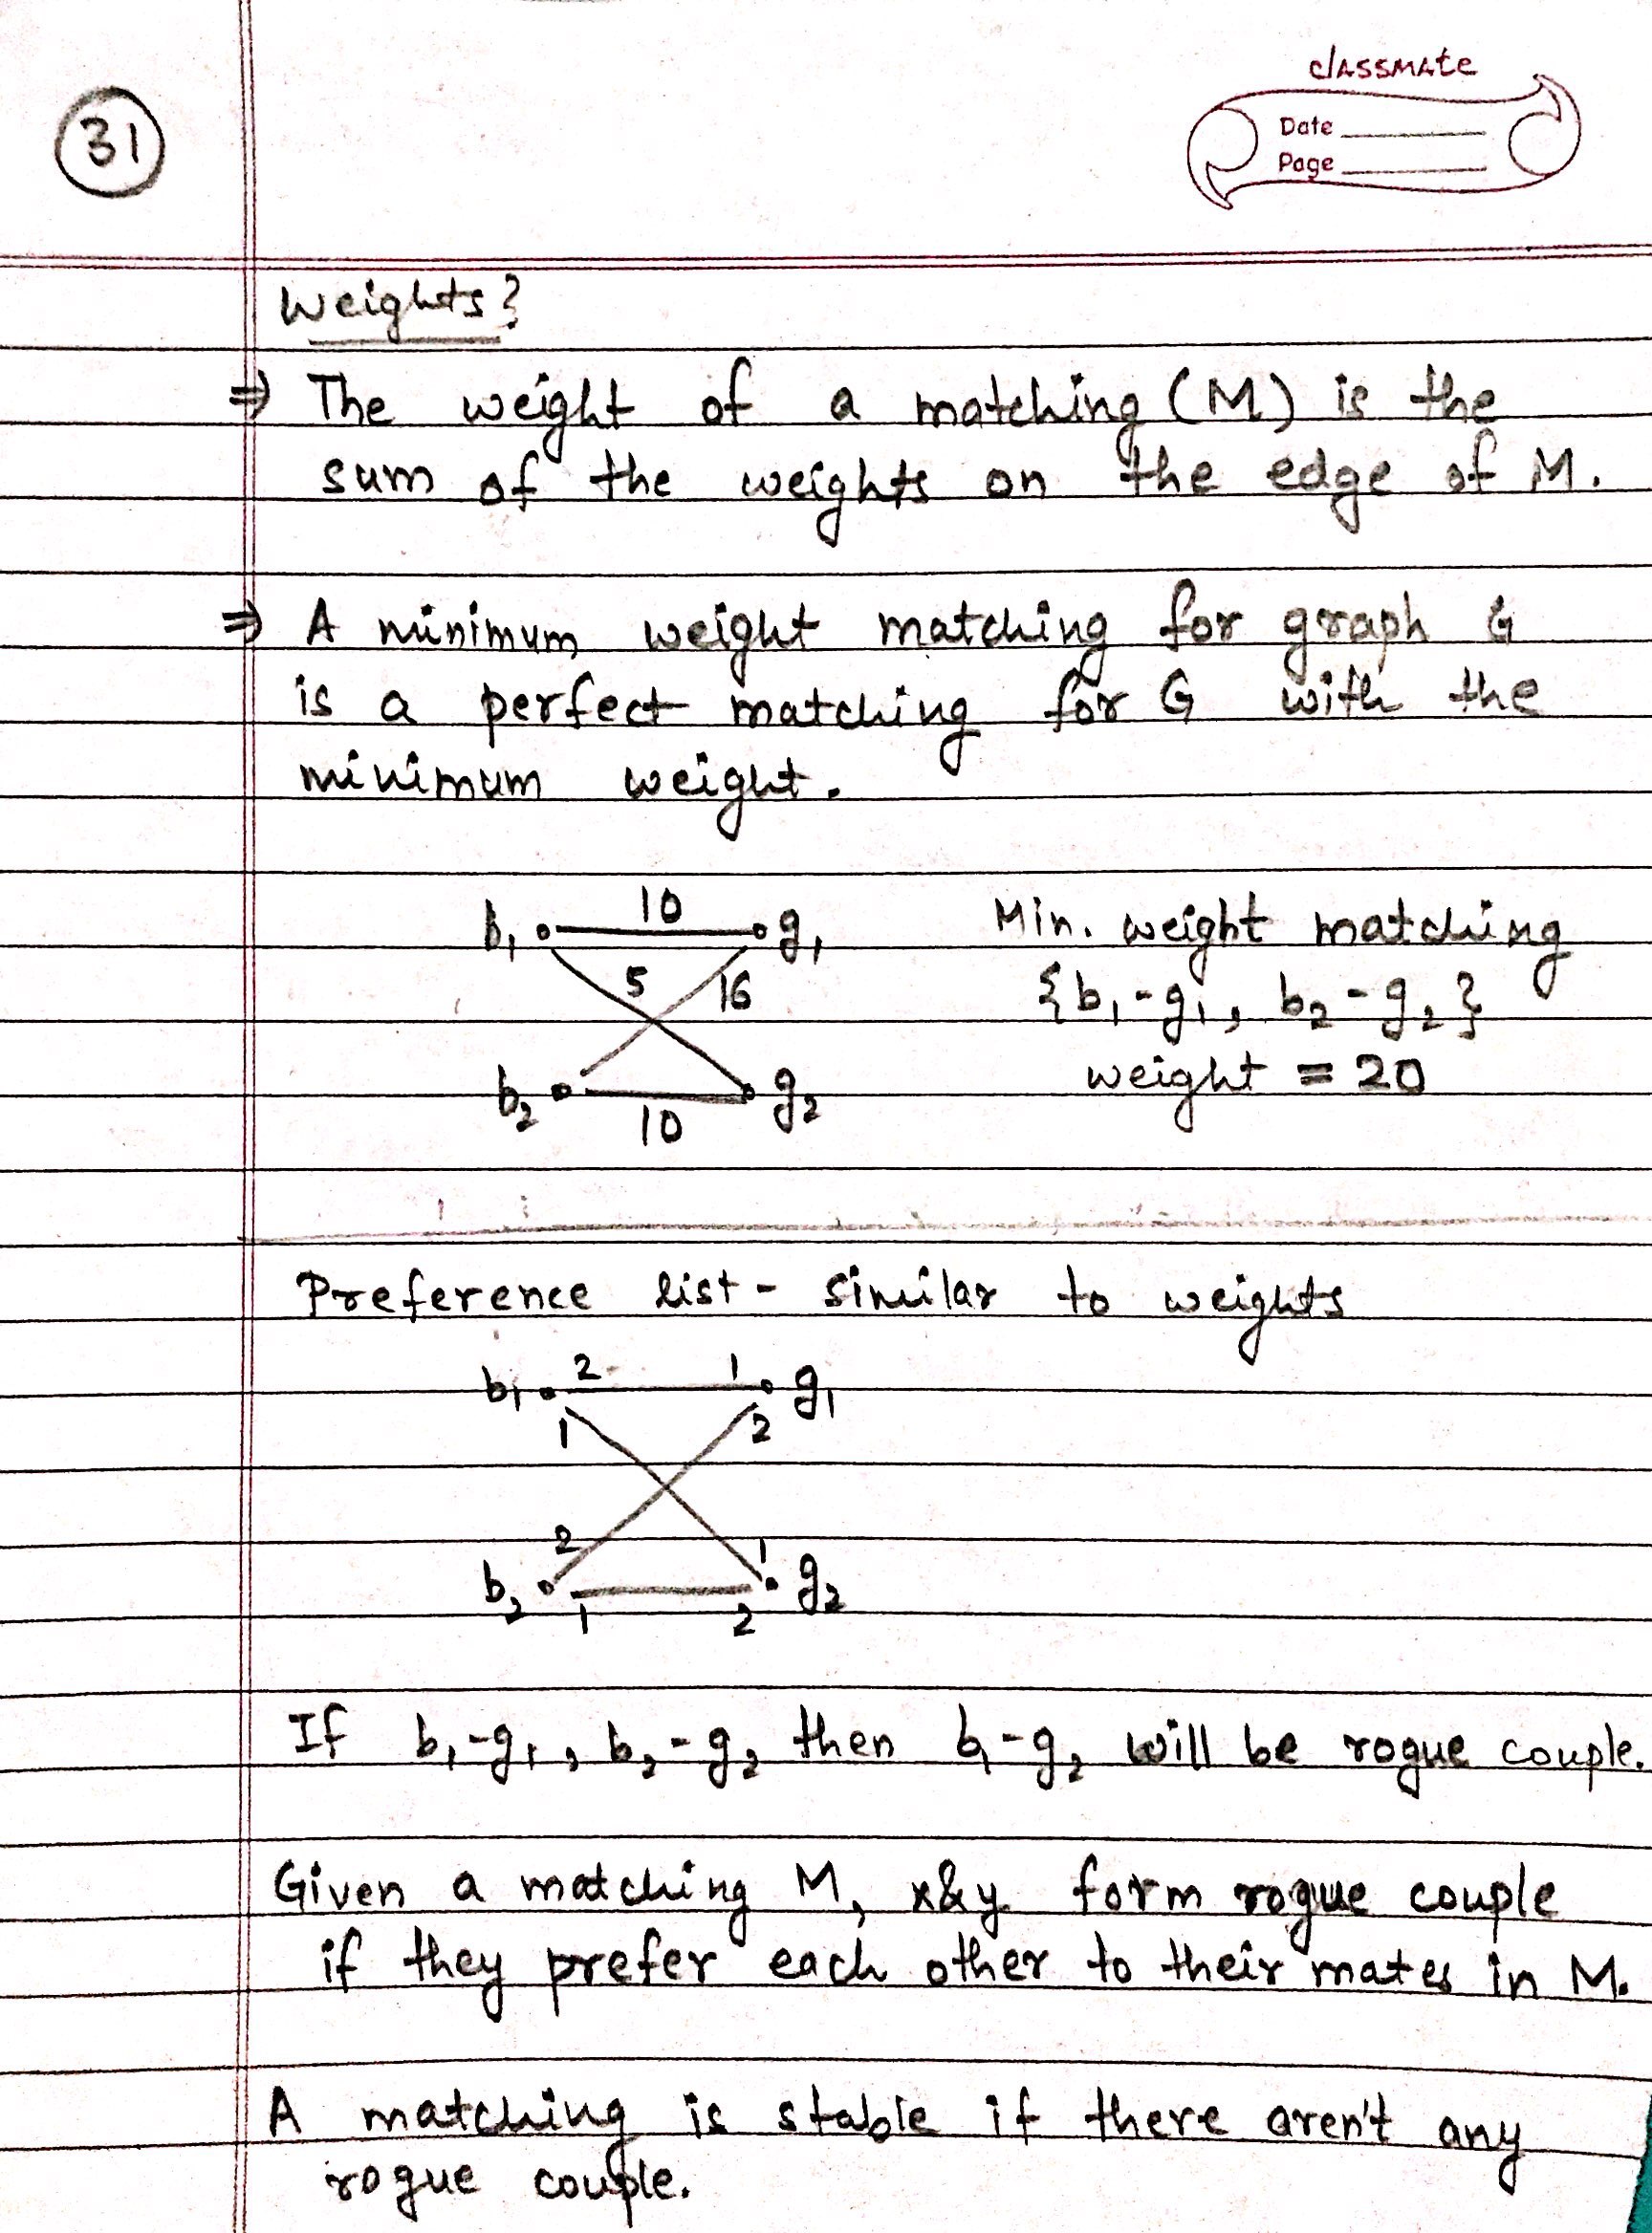 31
classmate
Date
Page
Weights?
⇒ The weight of a matching (M) is the
sum of the weights on the edge of M.
⇒ A minimum weight matching for graph G
is a perfect matching for G with the
minimum weight.
b₁ 10 g₁
5 16
b₂ 10 g₂
Min. weight matching
{b₁-g₁, b₂-g₂}
weight = 20
Preference list - similar to weights
b₁ 2 1 g₁
1 2
2 1
b₂ 1 2 g₂
If b₁-g₁, b₂-g₂ then b₁-g₂ will be rogue couple.
Given a matching M, x&y form rogue couple
if they prefer each other to their mates in M.
A matching is stable if there aren't any
rogue couple.